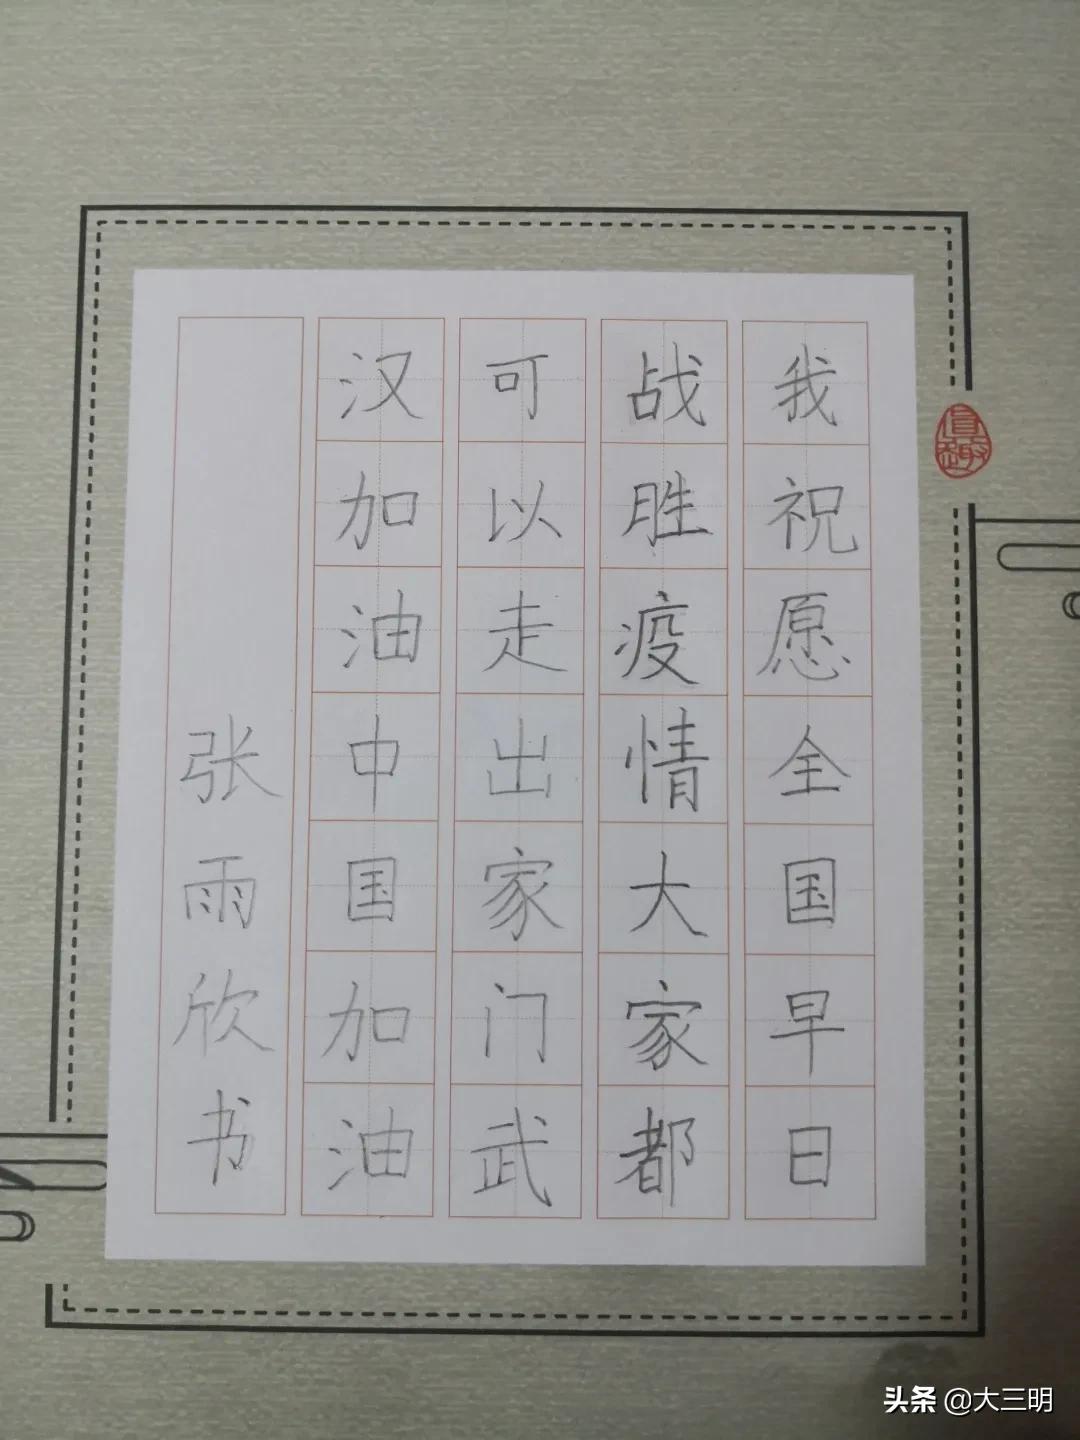 我祝愿全国早日
战胜疫情大家都
可以走出家门武
汉加油中国加油
张雨欣书
头条 @大三明